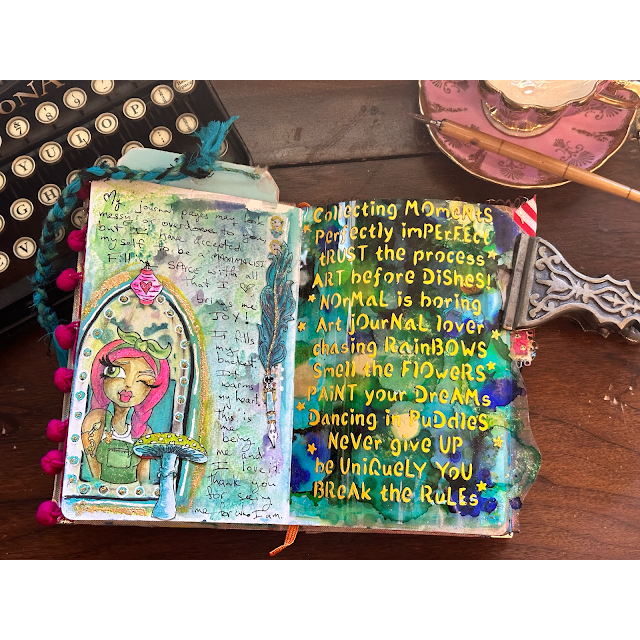 ONA
My journal pages may look
messy or overdone to you
but I have accepted
myself to be a maximalist
Filling space with all
that I
brings me
JOY!
It fills
my
bucket
It
warms
my heart
in
this is
me
being
me and
I love it
thank you
for seeing
me for who I am.
Collecting MOmeNtS
Perfectly imPErFEcT
tRUST the process
ARt before DiSHeS!
NOrMaL is boring
Art jOurNaL lover
chasing RainBOWS
Smell the FlOwERS
PAiNT your DreAMs
Dancing in PuDdleS
NeVer giVe UP
be UNiQueLY YoU
BReAk the RuLEs
Y U L O P
G H